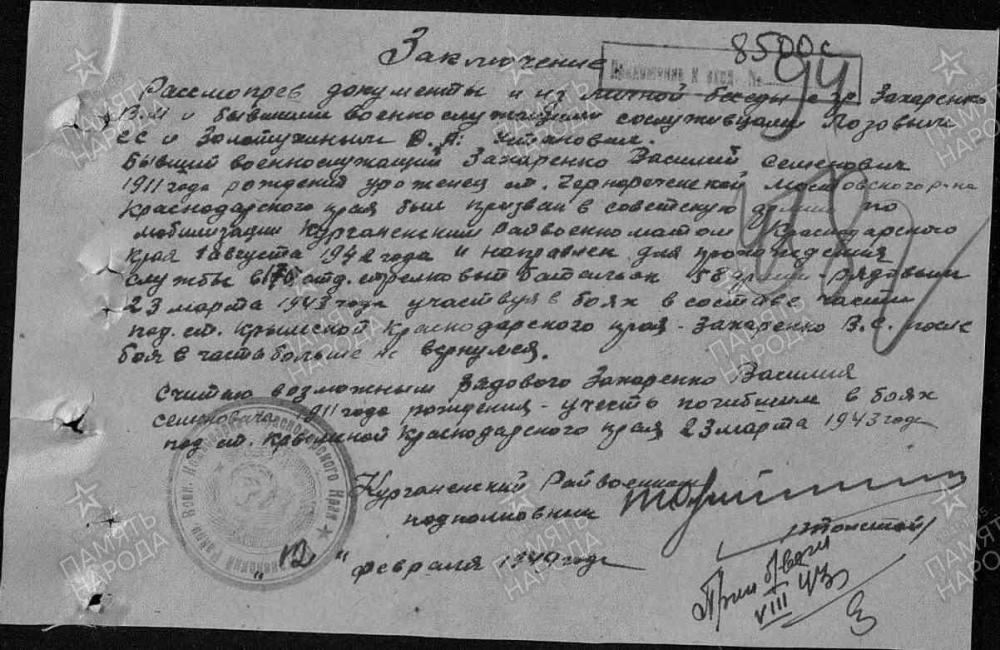 8500с
Заключение
Приложение к вход. №
94
Рассмотрев документы и из личной беседы с гр. Захаренко
В.М и бывшими военнослужащими сослуживцами Лозовым
ЕС и Золотухиным Д.А. Установил.
Бывший военнослужащий Захаренко Василий Семенович
1911 года рождения уроженец ст. Чернореченской Мостовского р-на
Краснодарского края был призван в советскую армию по
мобилизации Курганенским Райвоенкоматом Краснодарского
края 1 августа 1942 года и направлен для прохождения
службы в отд. стрелковый батальон 58 армии - рядовым
23 марта 1943 года участвуя в боях в составе части
под. ст. Крымской Краснодарского края - Захаренко В.С. после
боя в часть больше не вернулся.
Считаю возможным рядового Захаренко Василия
Семеновича 1911 года рождения - учесть погибшим в боях
под ст. Крымской Краснодарского края 23 марта 1943 год
Курганенский Райвоенком
подполковник
/Толстой/
"12" февраля 1949 года
VIII 43
Краснодарского Края
ПАМЯТЬ НАРОДА